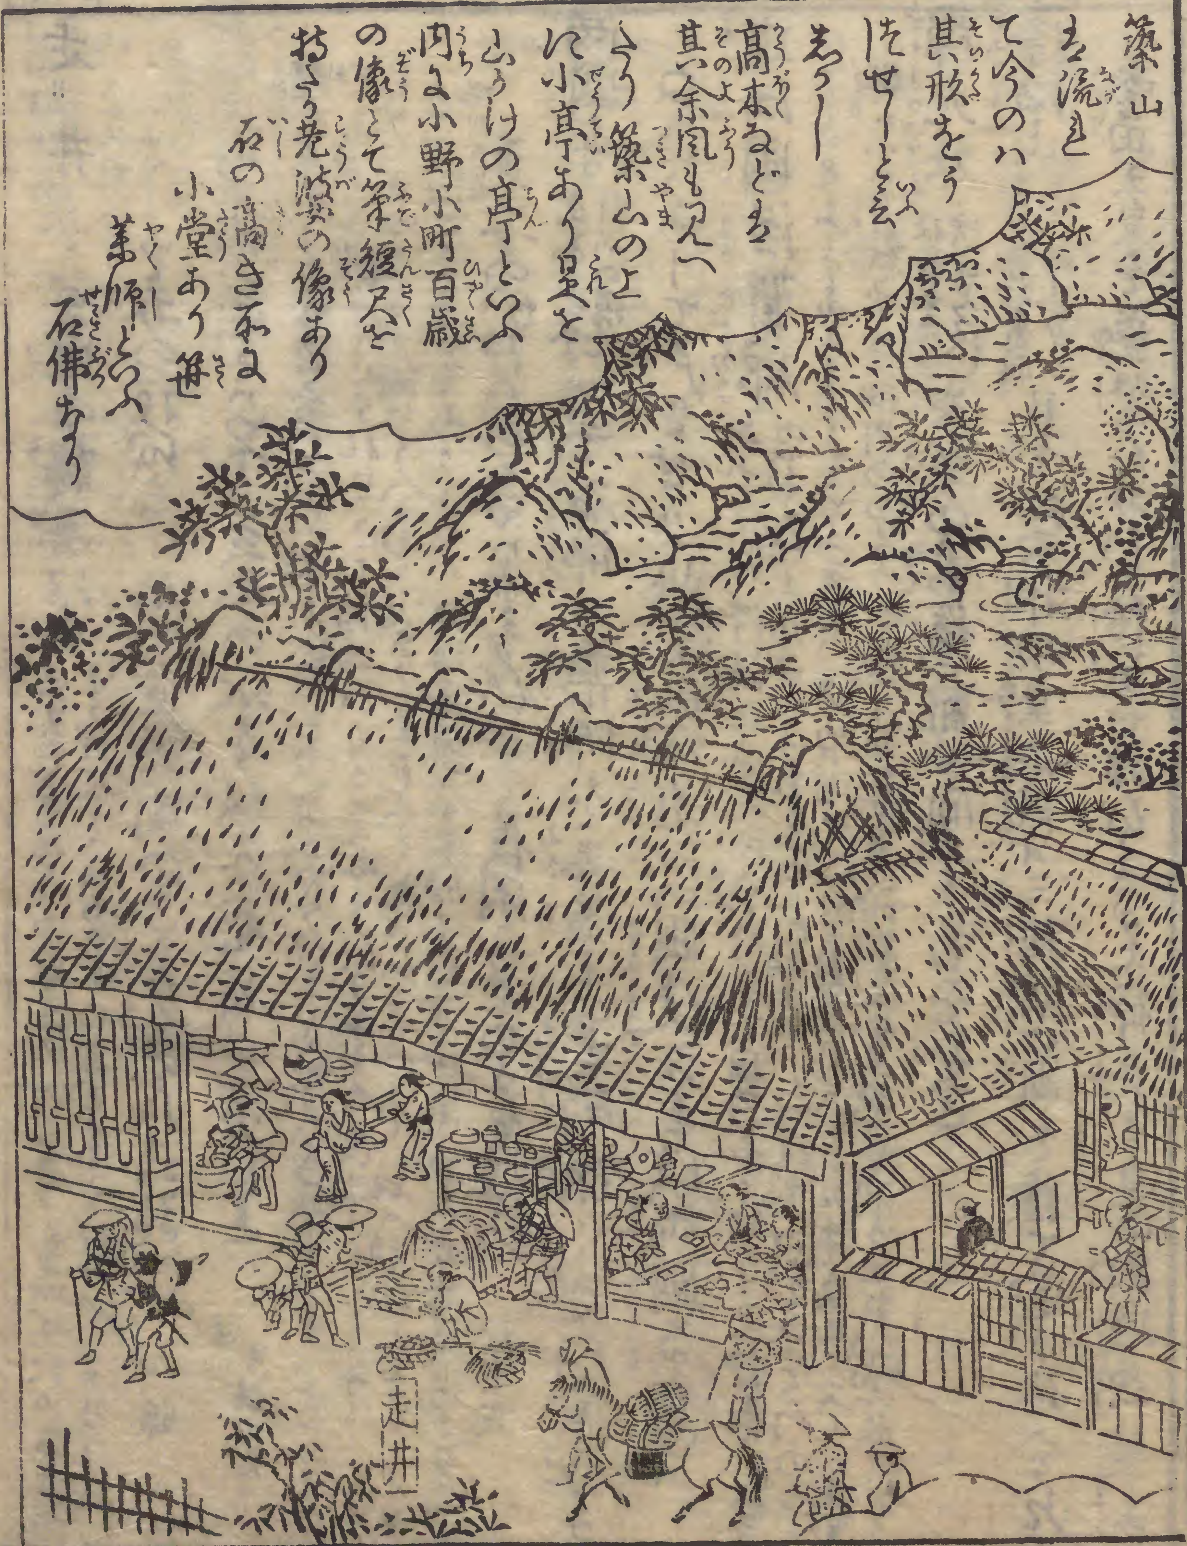 築山
は流れ
て今のハ
其形をう
つせしと云
しかし
高木などは
其余風も見へ
たり築山の上
に小亭あり是を
山かけの亭といふ
内に小野小町百歳
の像とて筆短尺を
持たる老婆の像あり
石の高き所に
小堂あり笹
薬師といふ
石佛なり
走井